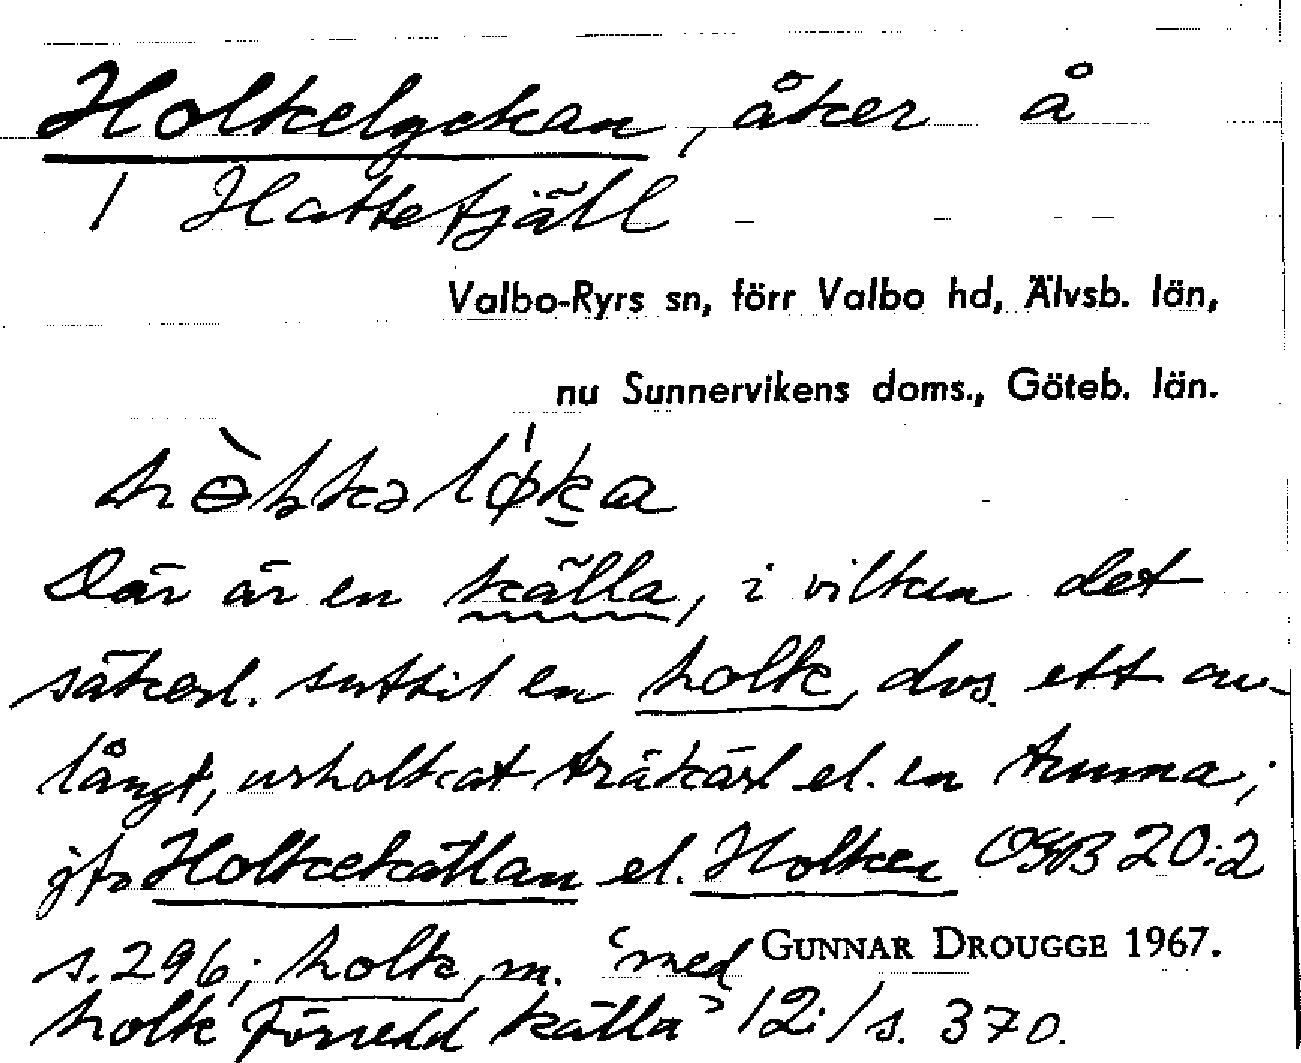 Holkelyckan, åker å
1 Hattefjäll
Valbo-Ryrs sn, förr Valbo hd, Älvsb. län,
nu Sunnervikens doms., Göteb. län.
Där är en källa, i vilken det
säkerl. suttit en holk, dvs. ett av-
långt, urholkat träkärl el. en tunna;
jfr Holkekällan el. Holken OGB 20:2
s. 296; holk, m. 'med GUNNAR DROUGGE 1967.
holk försedd källa' 12:1 s. 370.